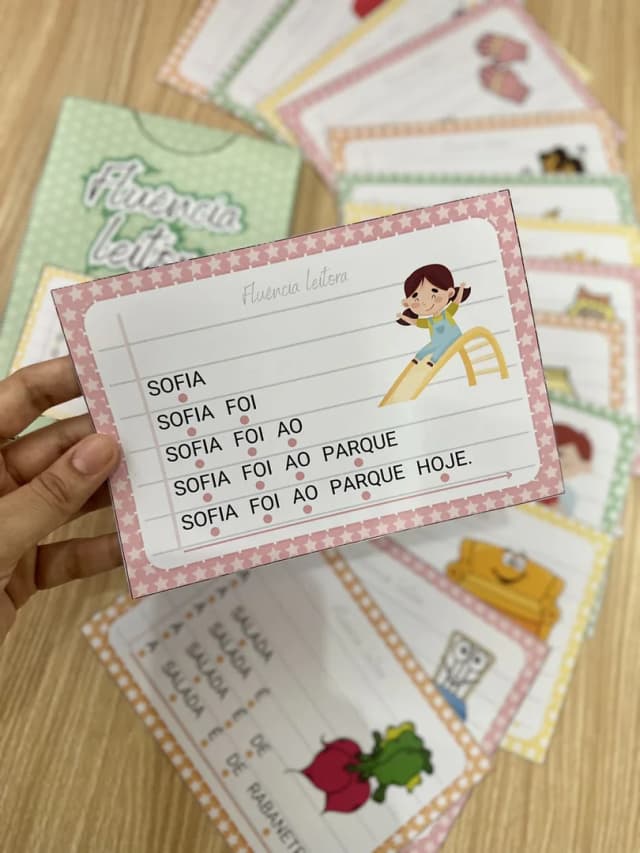 Fluência
leitora
Fluência leitora
SOFIA
SOFIA FOI
SOFIA FOI AO
SOFIA FOI AO PARQUE
SOFIA FOI AO PARQUE HOJE.
A
A SALADA
A SALADA É
A SALADA É DE
A SALADA É DE RABANETE